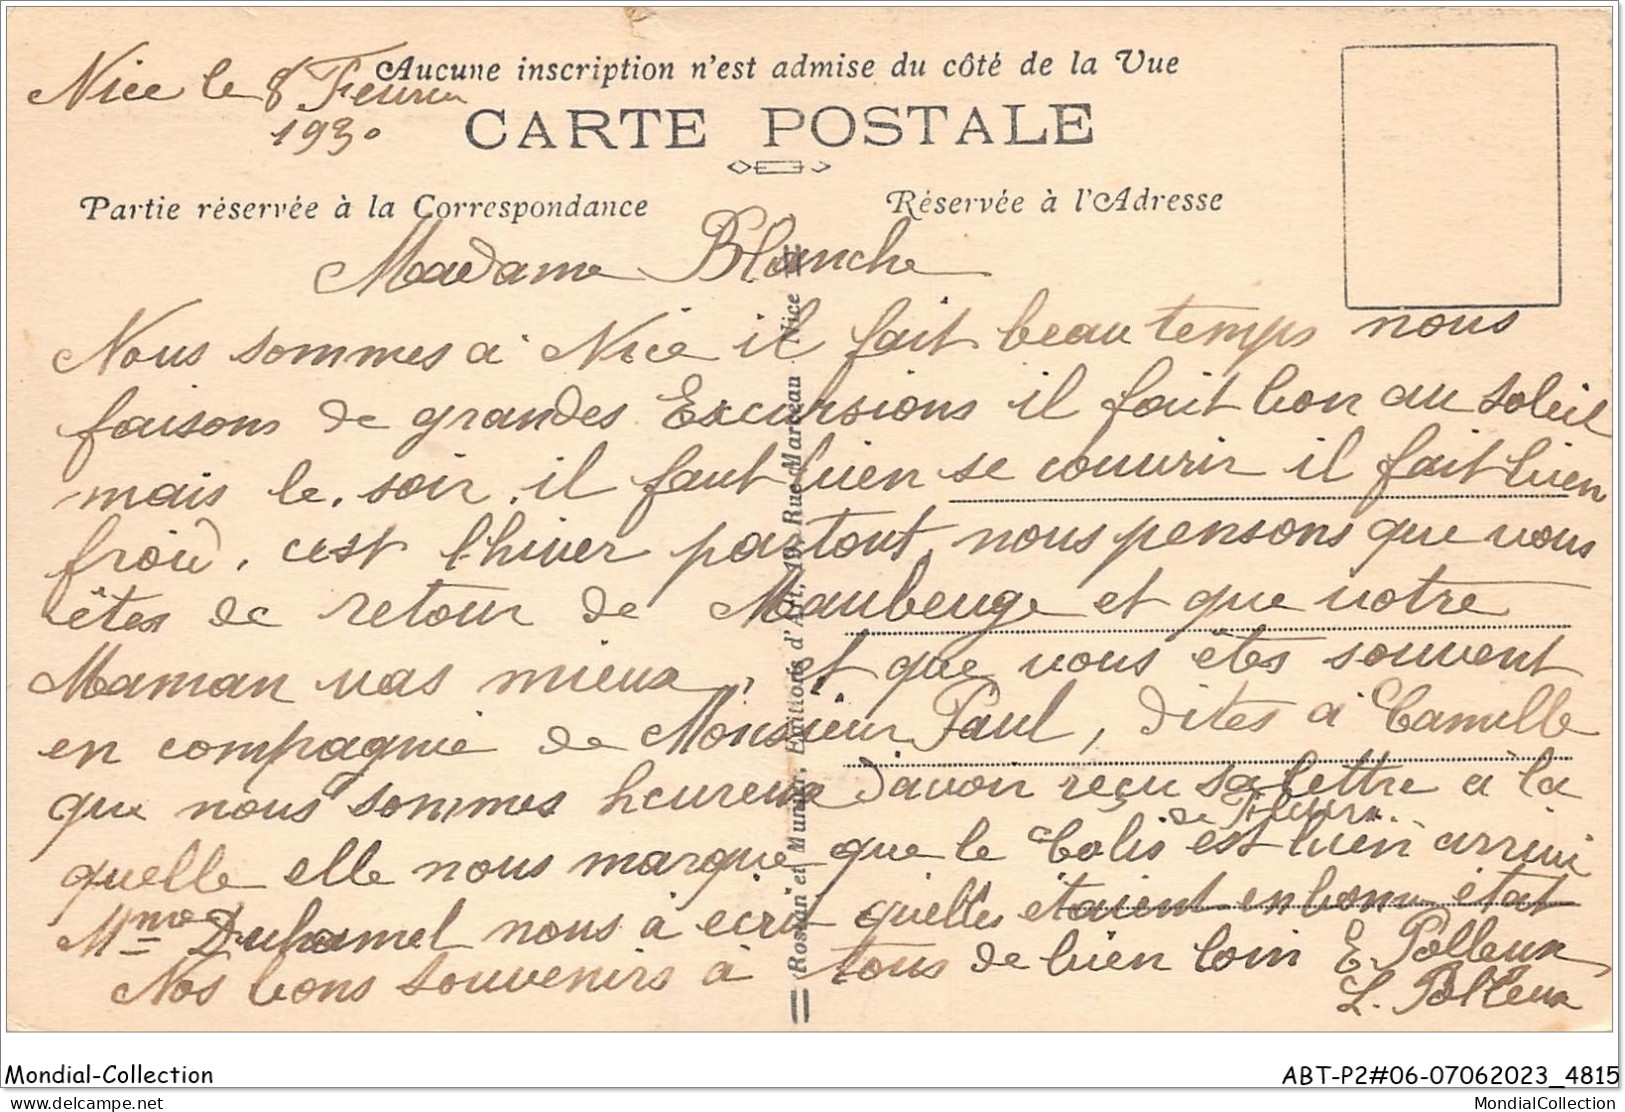 Aucune inscription n'est admise du côté de la Vue
Nice le 8 Fevrier
1930
CARTE POSTALE
Partie réservée à la Correspondance
Réservée à l'Adresse
Madame Blanche
Nous sommes a Nice il fait beau temps nous
faisons de grandes Excursions il fait bon au soleil
mais le soir il faut bien se couvrir il fait bien
froid. cest l'hiver partout, nous pensons que vous
êtes de retour de Maubeuge et que votre
Maman vas mieux, et que vous êtes souvent
en compagnie de Monsieur Paul, dites a Camille
que nous sommes heureux d'avoir reçu sa lettre a la
quelle elle nous marque que le Colis de Fleurs est bien arrivé
Mme Duhamel nous à ecrit quelles étaient en bonne état
Nos bons souvenirs à tous de bien loin E. Polleux
L. Polleux
Rostan et Munier, Editions d'Art, 19, Rue Marceau - Nice
Mondial-Collection
ABT-P2#06-07062023_4815
delcampe.net
MondialCollection